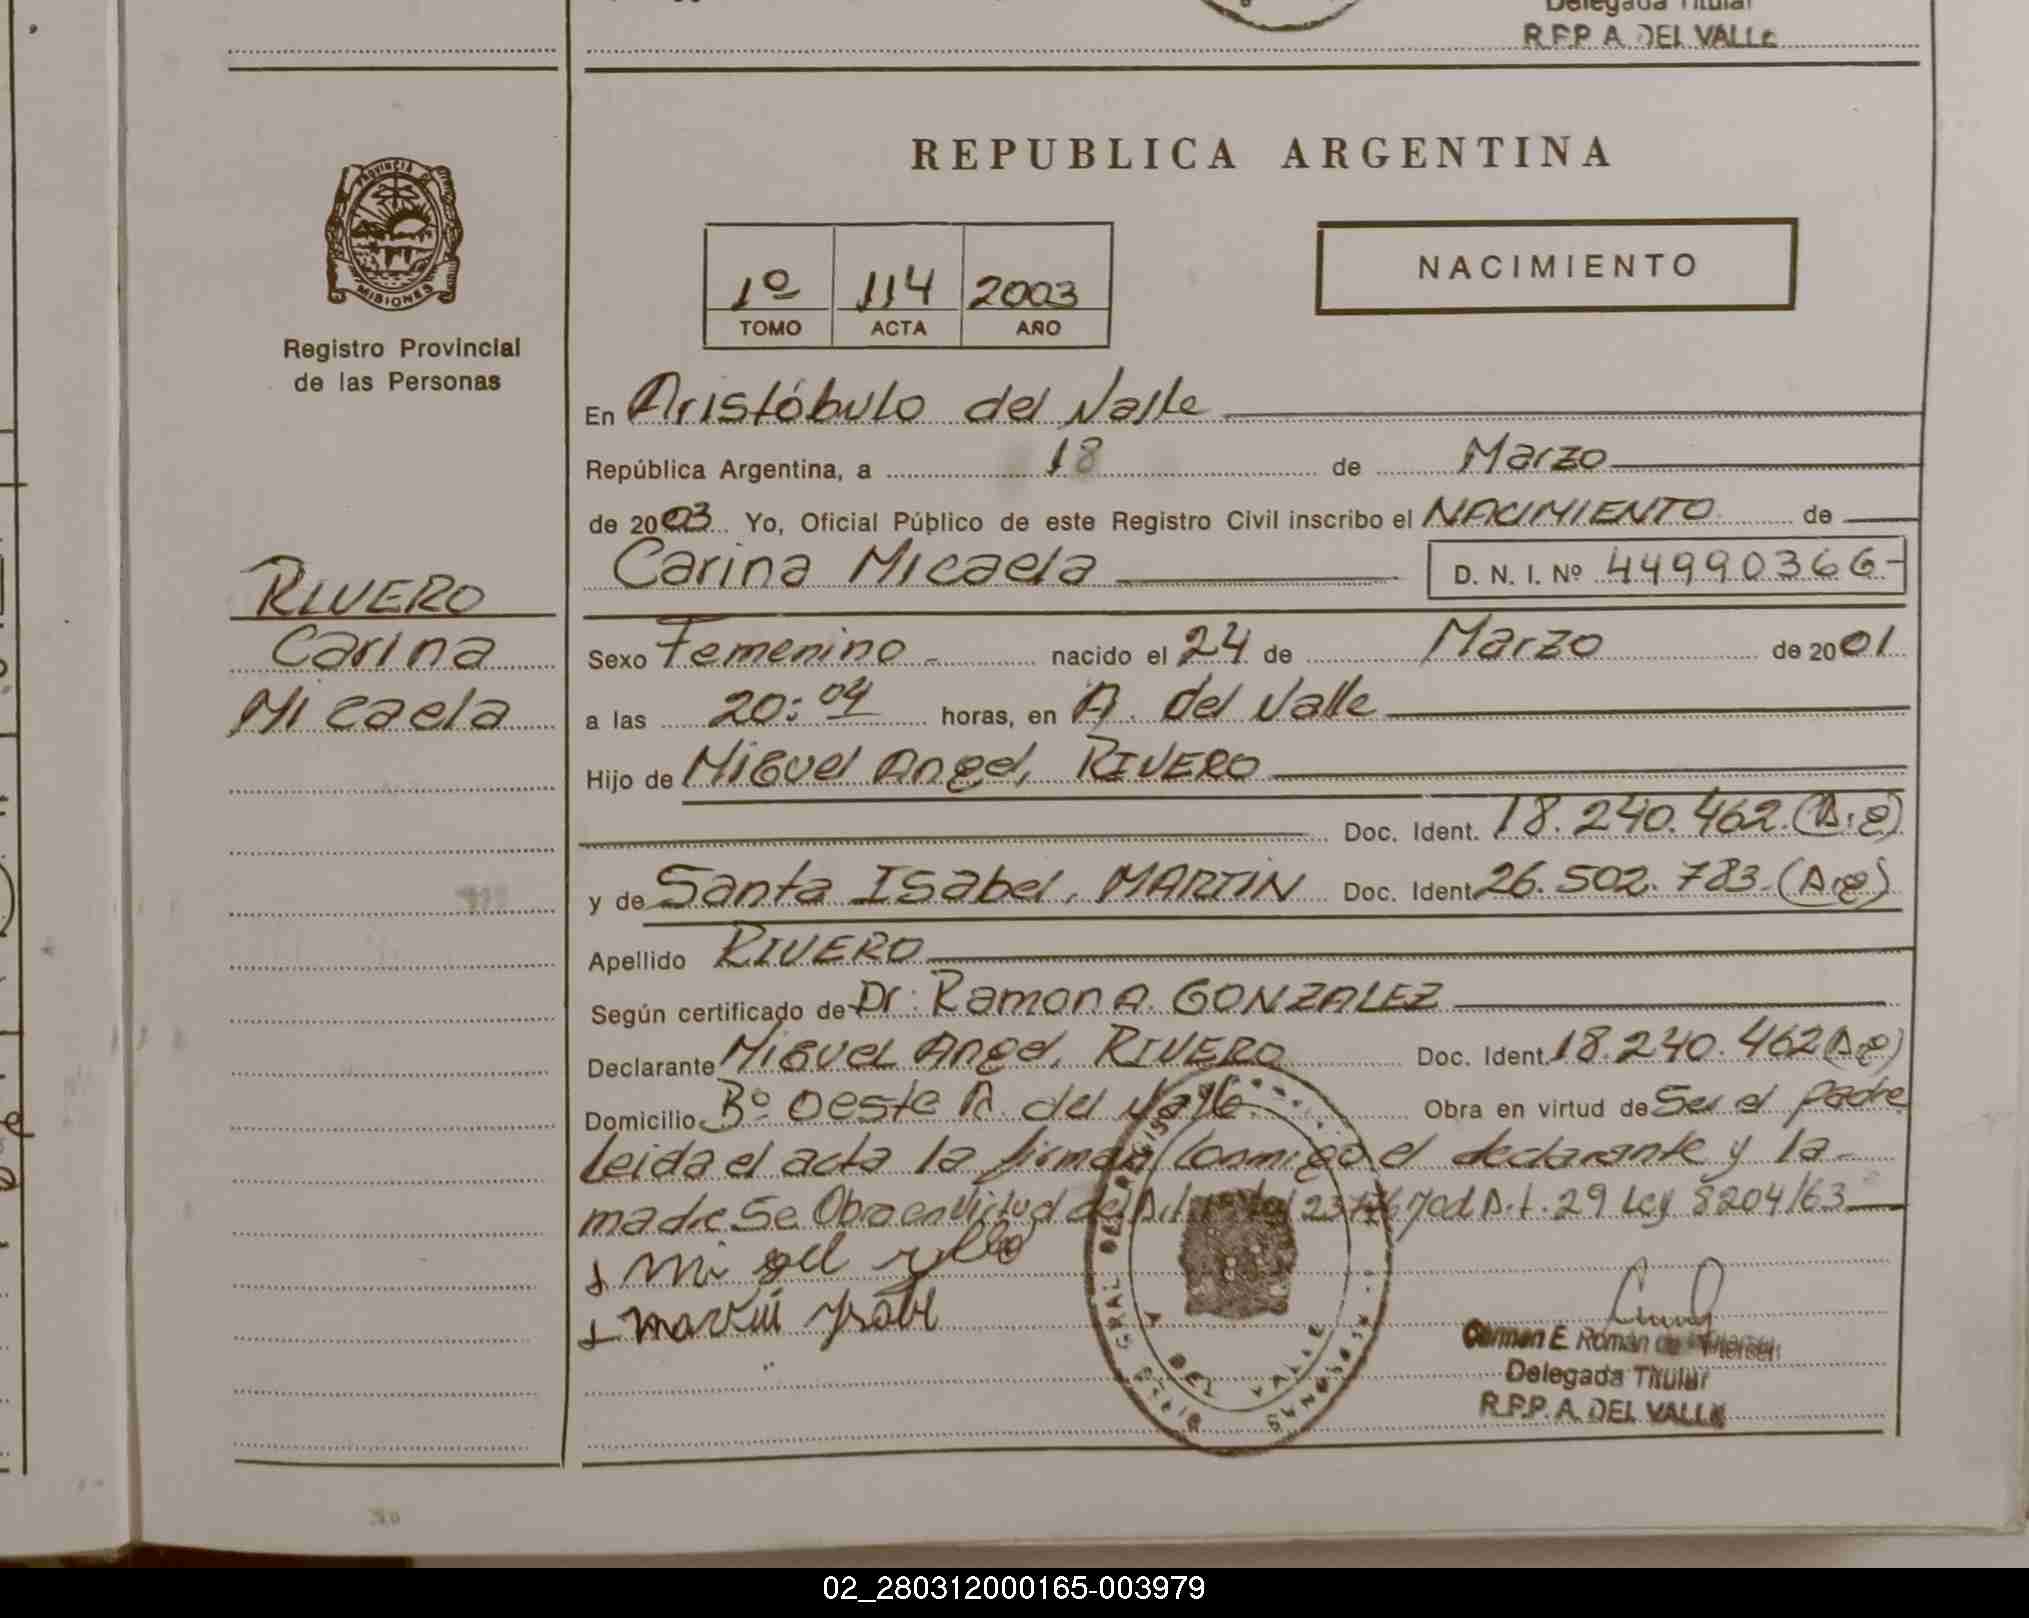 Delegada Titular
R.P.P. A. DEL VALLE
REPUBLICA ARGENTINA
PROVINCIA DE
MISIONES
Registro Provincial
de las Personas
1º 114 2003
TOMO ACTA AÑO
NACIMIENTO
En Aristóbulo del Valle
República Argentina, a 18 de Marzo
de 2003 Yo, Oficial Público de este Registro Civil inscribo el NACIMIENTO de
Carina Micaela D. N. I. Nº 44990366-
RIVERO
Carina
Micaela
Sexo Femenino nacido el 24 de Marzo de 2001
a las 20:04 horas, en A. del Valle
Hijo de Miguel Angel, RIVERO
Doc. Ident. 18.240.462.(Arg)
y de Santa Isabel, MARTIN Doc. Ident. 26.502.783.(Arg)
Apellido RIVERO
Según certificado de Dr. Ramon A. GONZALEZ
Declarante Miguel Angel, RIVERO Doc. Ident. 18.240.462(Arg)
Domicilio Bº Oeste A. del Valle Obra en virtud de Ser el padre
Leida el acta la firman conmigo el declarante y la
madre Se Obra en Virtud del Art. Mod Art. 29 Ley 8204/63
martin ysabel
A. DEL VALLE
Carmen E. Román de
Delegada Titular
R.P.P. A. DEL VALLE
02_280312000165-003979